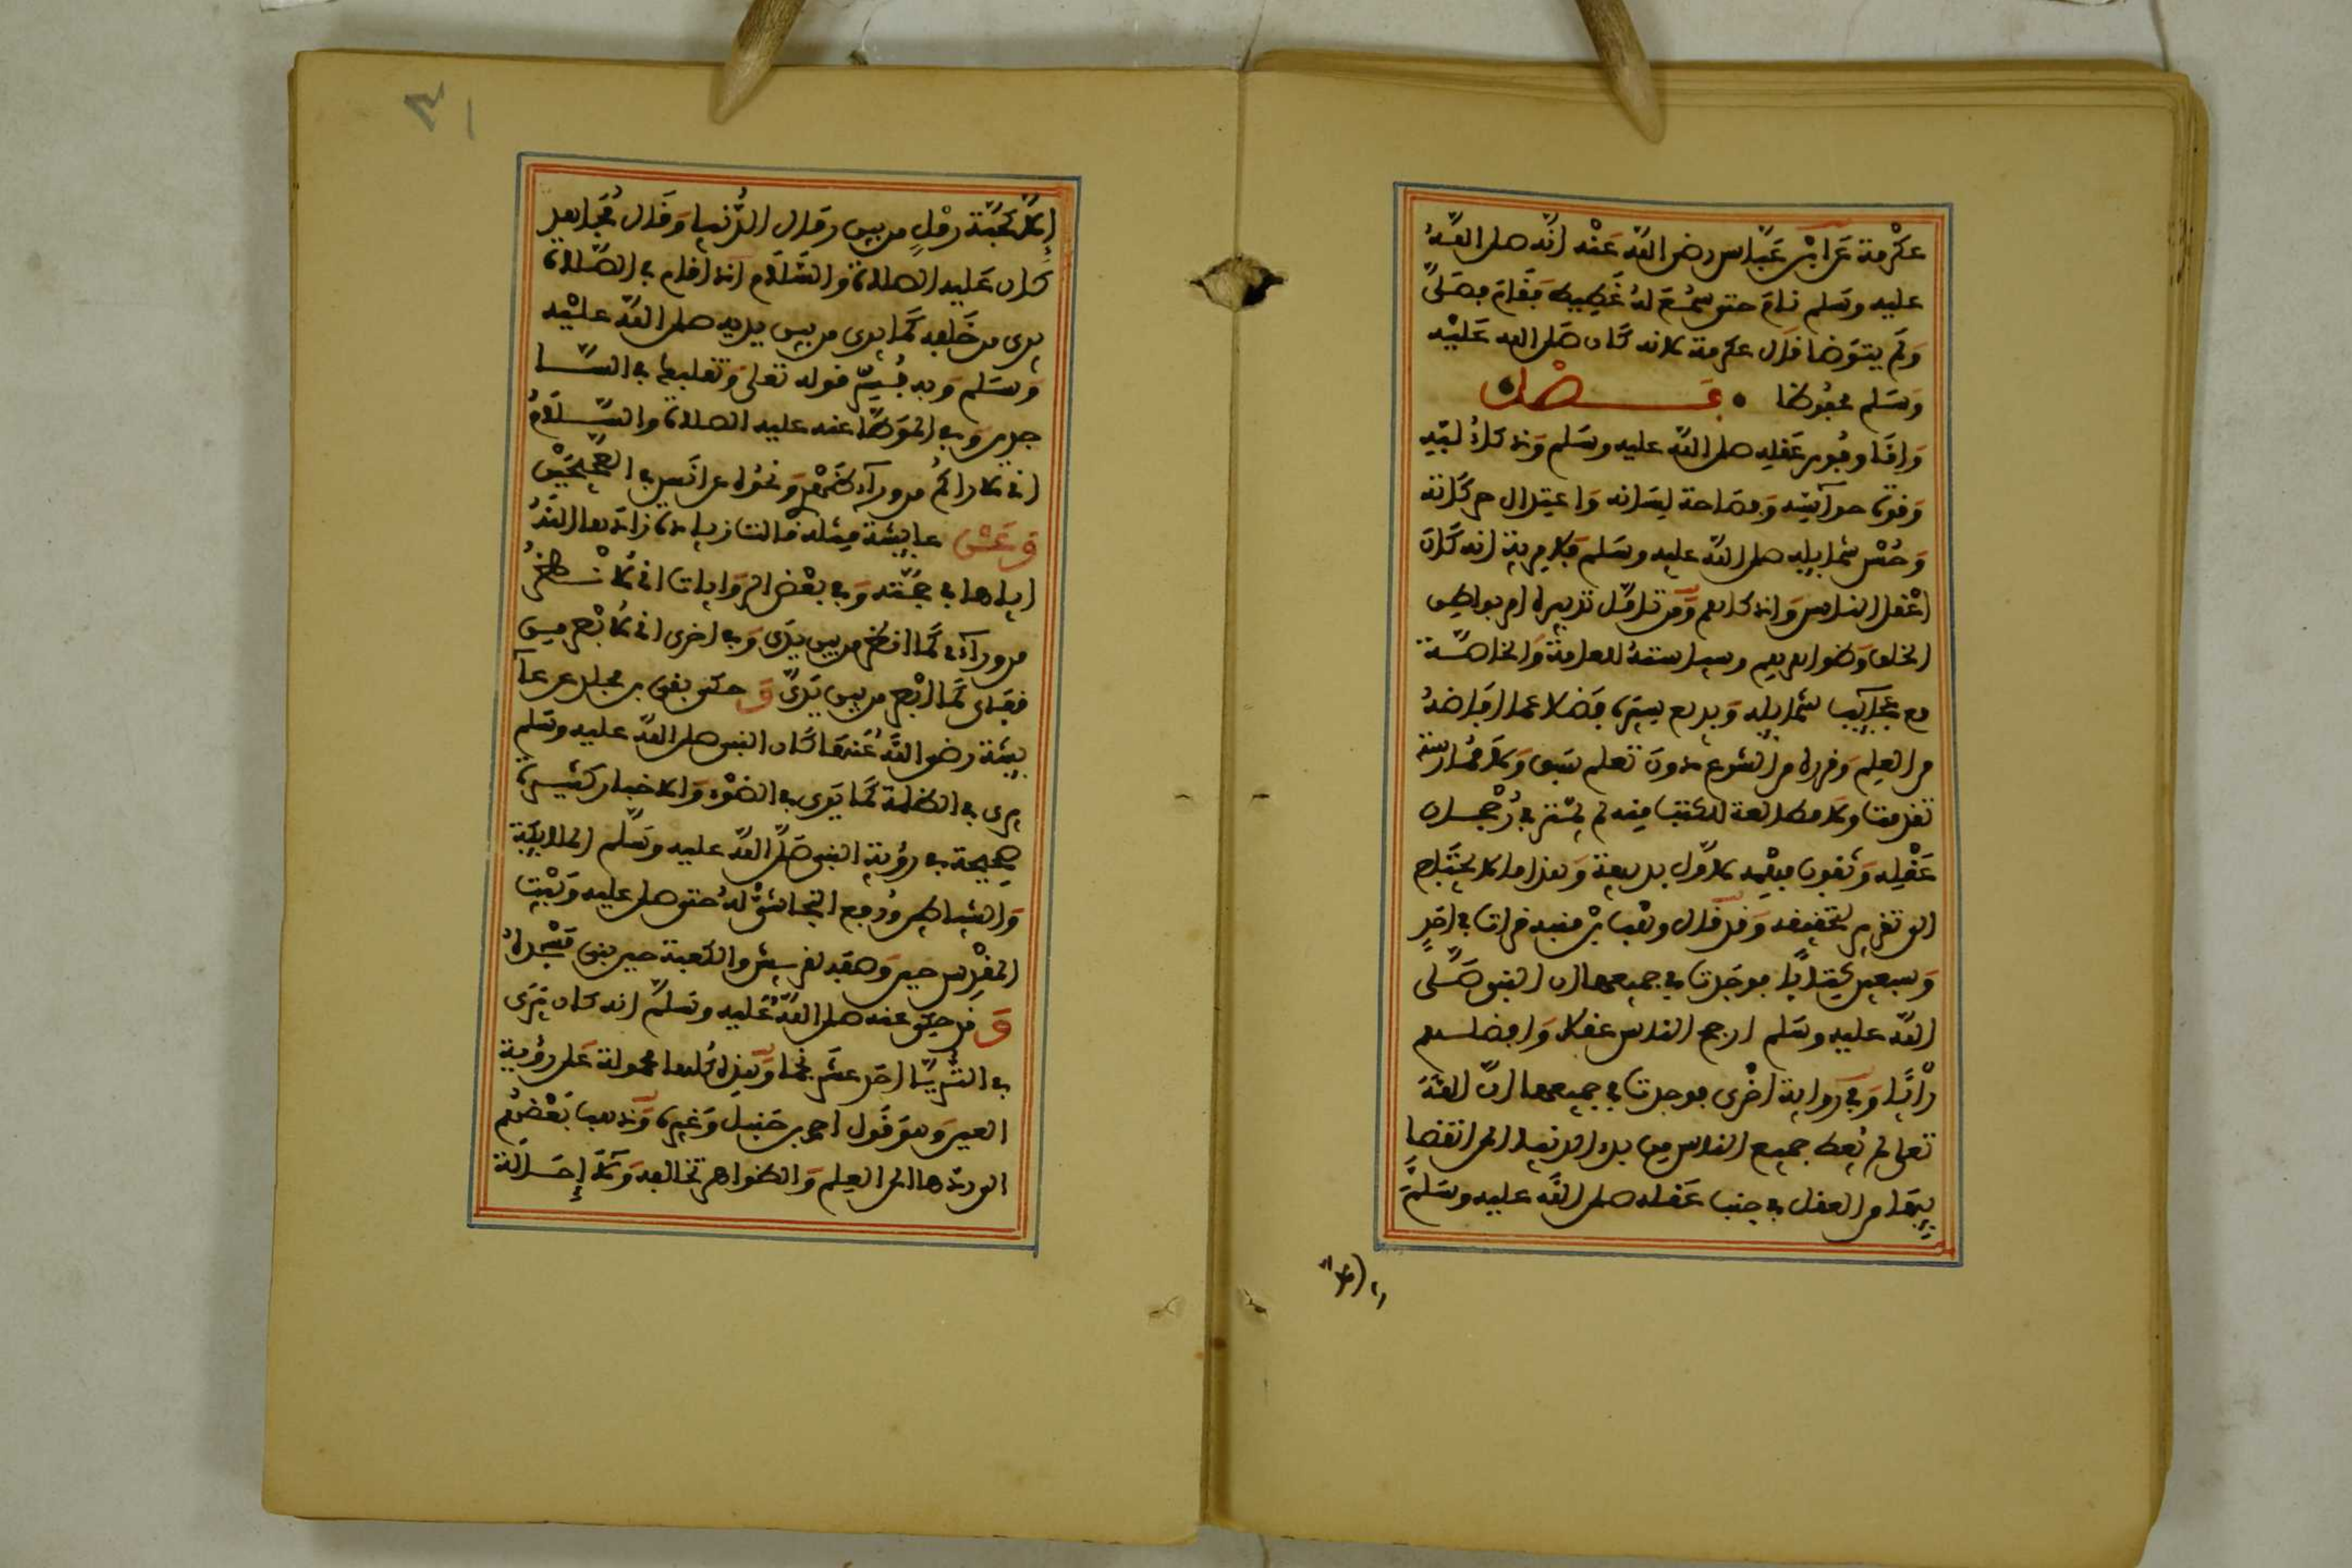 عكرمة عن ابن عباس رضي الله عنه انه صلى الله
عليه وسلم نام حتى سمع له غطيط فقام فصلى
ولم يتوضا قال عكرمة لانه كان صلى الله عليه
وسلم محفوظا فصل
واما وفور عقله صلى الله عليه وسلم وذكاء لبه
وقوة حواسه وفصاحة لسانه واعتدال حركاته
وحسن شمايله صلى الله عليه وسلم فلا مرية انه كان
اعقل الناس واذكاهم ومن تامل تدبيره امر بواطن
الخلق وظواهرهم وسياسته العامة والخاصة
مع عجايب شمايله وبديع سيره فضلا عما افاضه
من العلم وقرره من الشرع دون تعلم سبق ولا ممارسة
تقدمت ولا مطالعة للكتب منه لم يمتر في رجحان
عقله وثقوب فهمه لاول بديهة وهذا ما لا يحتاج
الى تقرير لتحققه وقد قال وهب بن منبه قرات في احد
وسبعين كتابا فوجدت في جميعها ان النبي صلى
الله عليه وسلم ارجح الناس عقلا وافضلهم
رايا وفي رواية اخرى فوجدت في جميعها ان الله
تعالى لم يعط جميع الناس من بدء الدنيا الى انقضا
يها من العقل في جنب عقله صلى الله عليه وسلم
الا
الا كحبة رمل من بين رمال الدنيا وقال مجاهد
كان عليه الصلاة والسلام اذا قام في الصلاة
يرى من خلفه كما يرى من بين يديه صلى الله عليه
وسلم وبه فسر قوله تعلى وتقلبك في السا
جدين وفي الموطا عنه عليه الصلاة والسلام
اني لاراكم من وراء ظهري ونحوه عن انس في الصحيحين
وعن عايشة مثله قالت زيادة زاده الله
اياها في حجته وفي بعض الروايات اني لانظر
من وراءي كما انظر من بين يدي وفي اخرى اني لابصر من
قفاي كما ابصر من بين يدي وحكى بقي بن مخلد عن عا
يشة رضي الله عنها كان النبي صلى الله عليه وسلم
يرى في الظلمة كما يرى في الضوء والاخبار كثيرة
صحيحة في رؤية النبي صلى الله عليه وسلم الملايكة
والشياطين ورفع النجاشي له حتى صلى عليه وبيت
المقدس حين وصفه لقريش والكعبة حين بنى مسجده
وقد حكي عنه صلى الله عليه وسلم انه كان يرى
في الثريا احد عشر نجما وهذه كلها محمولة على رؤية
العين وهو قول احمد بن حنبل وغيره وذهب بعضهم
الى ردها الى العلم والظواهر تخالفه ولا إحالة